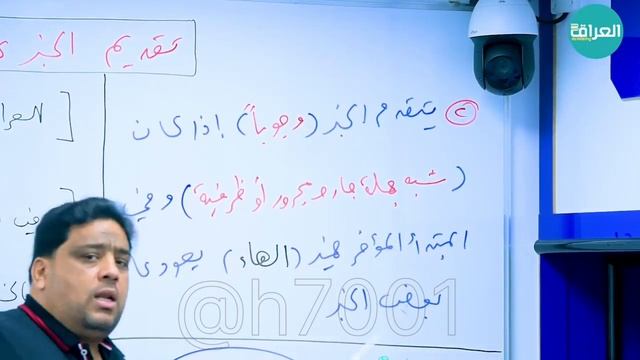 تقديم الخبر
② يتقدم الخبر (وجوباً) إذا كان
(شبه جملة جار ومجرور أو ظرفية) وفي
المبتدأ المؤخر ضمير (الهاء) يعود على
بعض الخبر
@h7001
العراقي